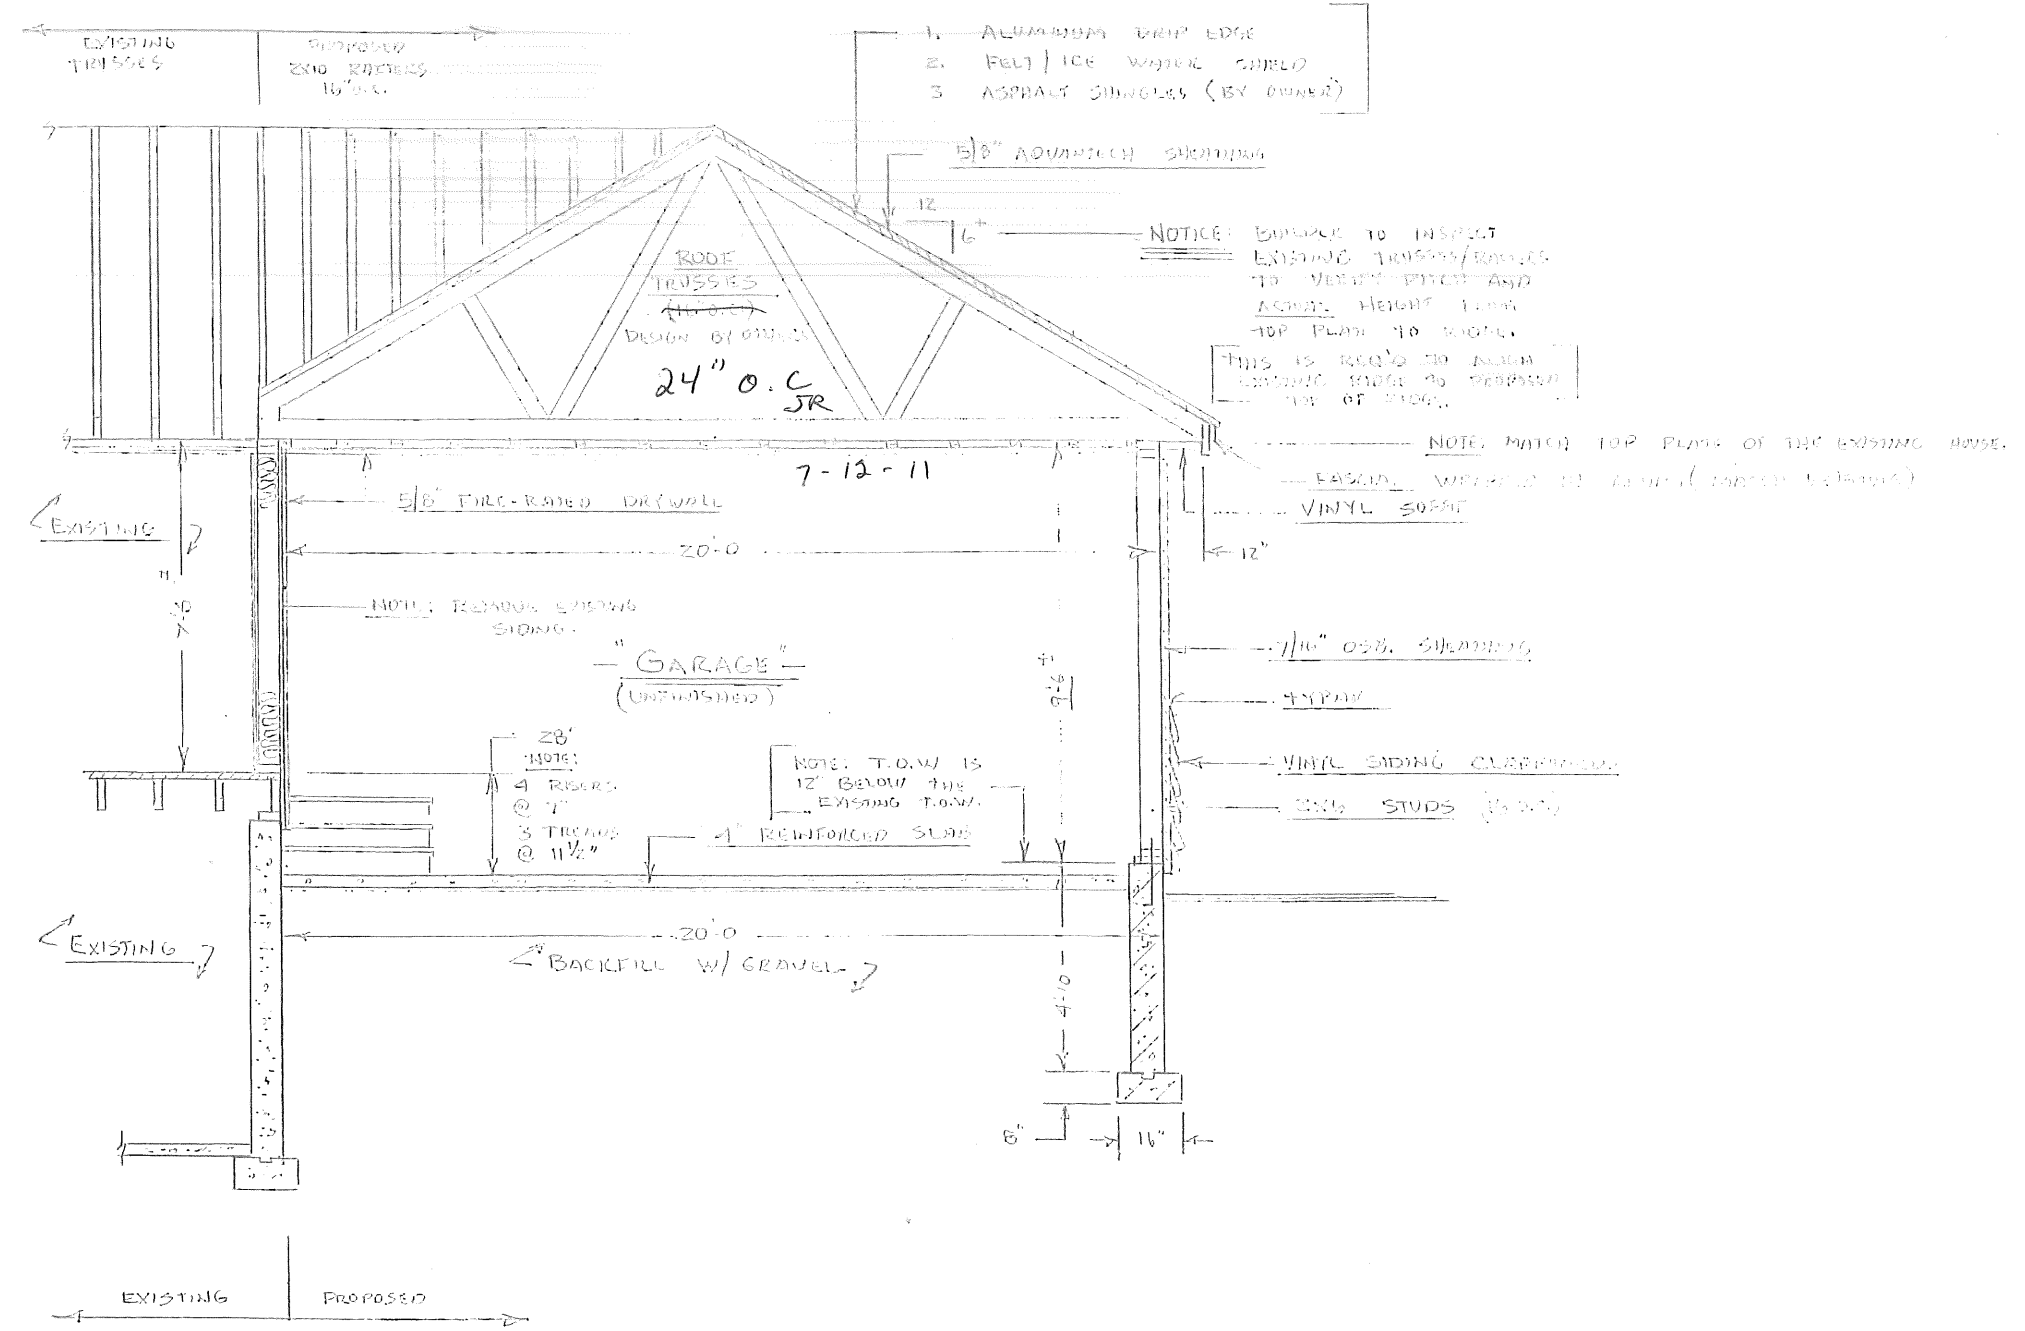 EXISTING
TRUSSES
PROPOSED
2X10 RAFTERS
16" O.C.
1. ALUMINUM DRIP EDGE
2. FELT / ICE WATER SHIELD
3 ASPHALT SHINGLES (BY OWNER)
5/8" ADVANTECH SHEATHING
12
6+
NOTICE: BUILDER TO INSPECT
EXISTING TRUSSES/RAFTERS
TO VERIFY PITCH AND
ACTUAL HEIGHT FROM
TOP PLATE TO RIDGE.
THIS IS REQ'D TO ALIGN
EXISTING RIDGE TO PROPOSED
TOP OF RIDGE.
ROOF
TRUSSES
(16" O.C.)
DESIGN BY OTHERS
24" O.C
JR
7-12-11
NOTE: MATCH TOP PLATE OF THE EXISTING HOUSE.
FASCIA WRAPPED IN (MATCH EXISTING)
VINYL SOFFIT
12"
5/8" FIRE-RATED DRYWALL
EXISTING
20'-0
7'-8"
NOTE: REMOVE EXISTING
SIDING.
"GARAGE"
(UNFINISHED)
9'-6"
7/16" OSB. SHEATHING
TYPAR
VINYL SIDING
2X6 STUDS (16" O.C.)
28"
NOTE:
4 RISERS
@ 7"
3 TREADS
@ 11 1/2"
NOTE: T.O.W IS
12" BELOW THE
EXISTING T.O.W.
4" REINFORCED SLAB
EXISTING
20'-0
BACKFILL W/ GRAVEL
4'-10
8"
16"
EXISTING
PROPOSED